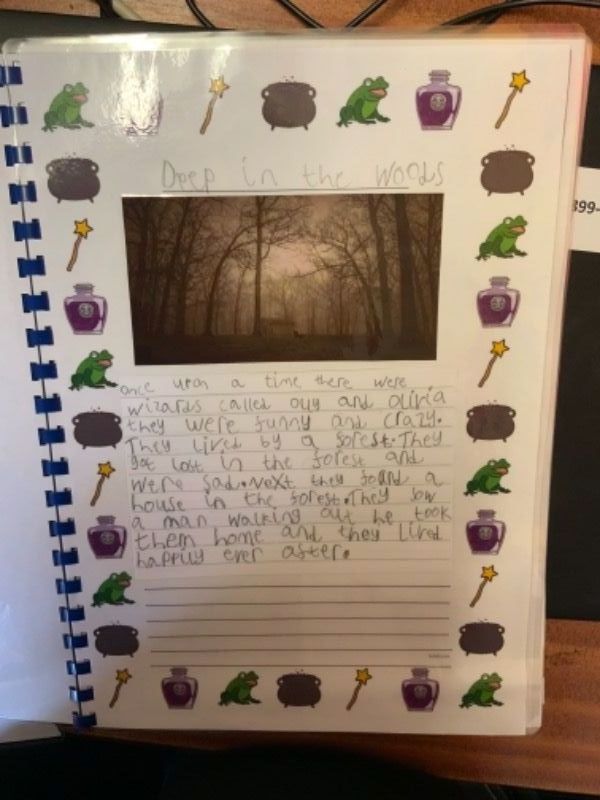 Deep in the woods
399-
once upon a time there were
wizards called olly and olivia
they were funny and crazy.
They lived by a forest. They
got lost in the forest and
were sad. Next they found a
house in the forest. They sow
a man walking out he took
them home and they lived
happily ever after.